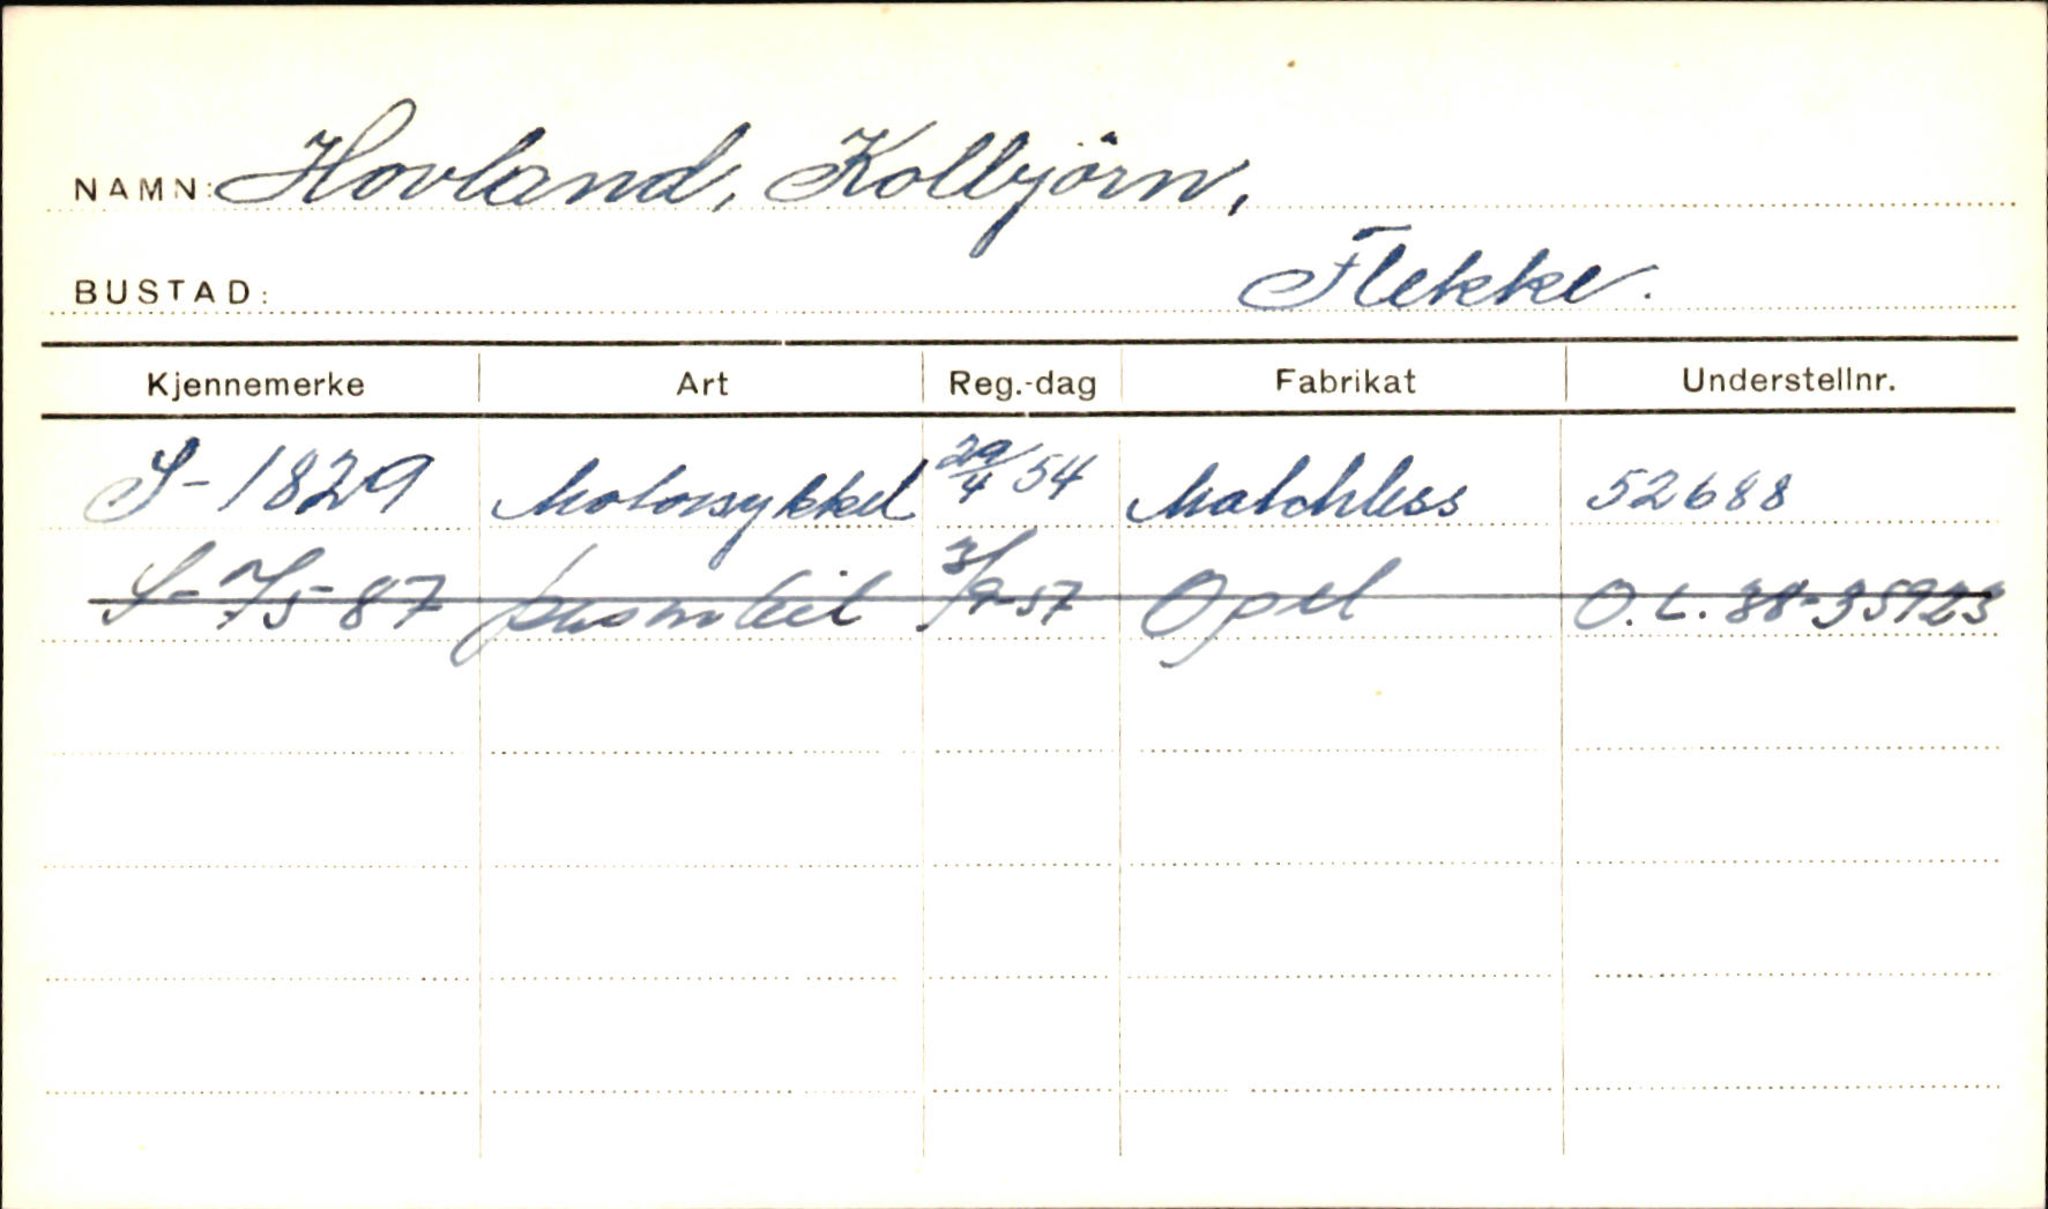 NAMN: Hovland, Kolbjörn,
BUSTAD: Flekke.
Kjennemerke Art Reg.-dag Fabrikat Understellnr.
S-1829 Motorsykkel 29/4 54 Matchless 52688
S-7587 personbil 3/9-57 Opel O.L. 38-35923